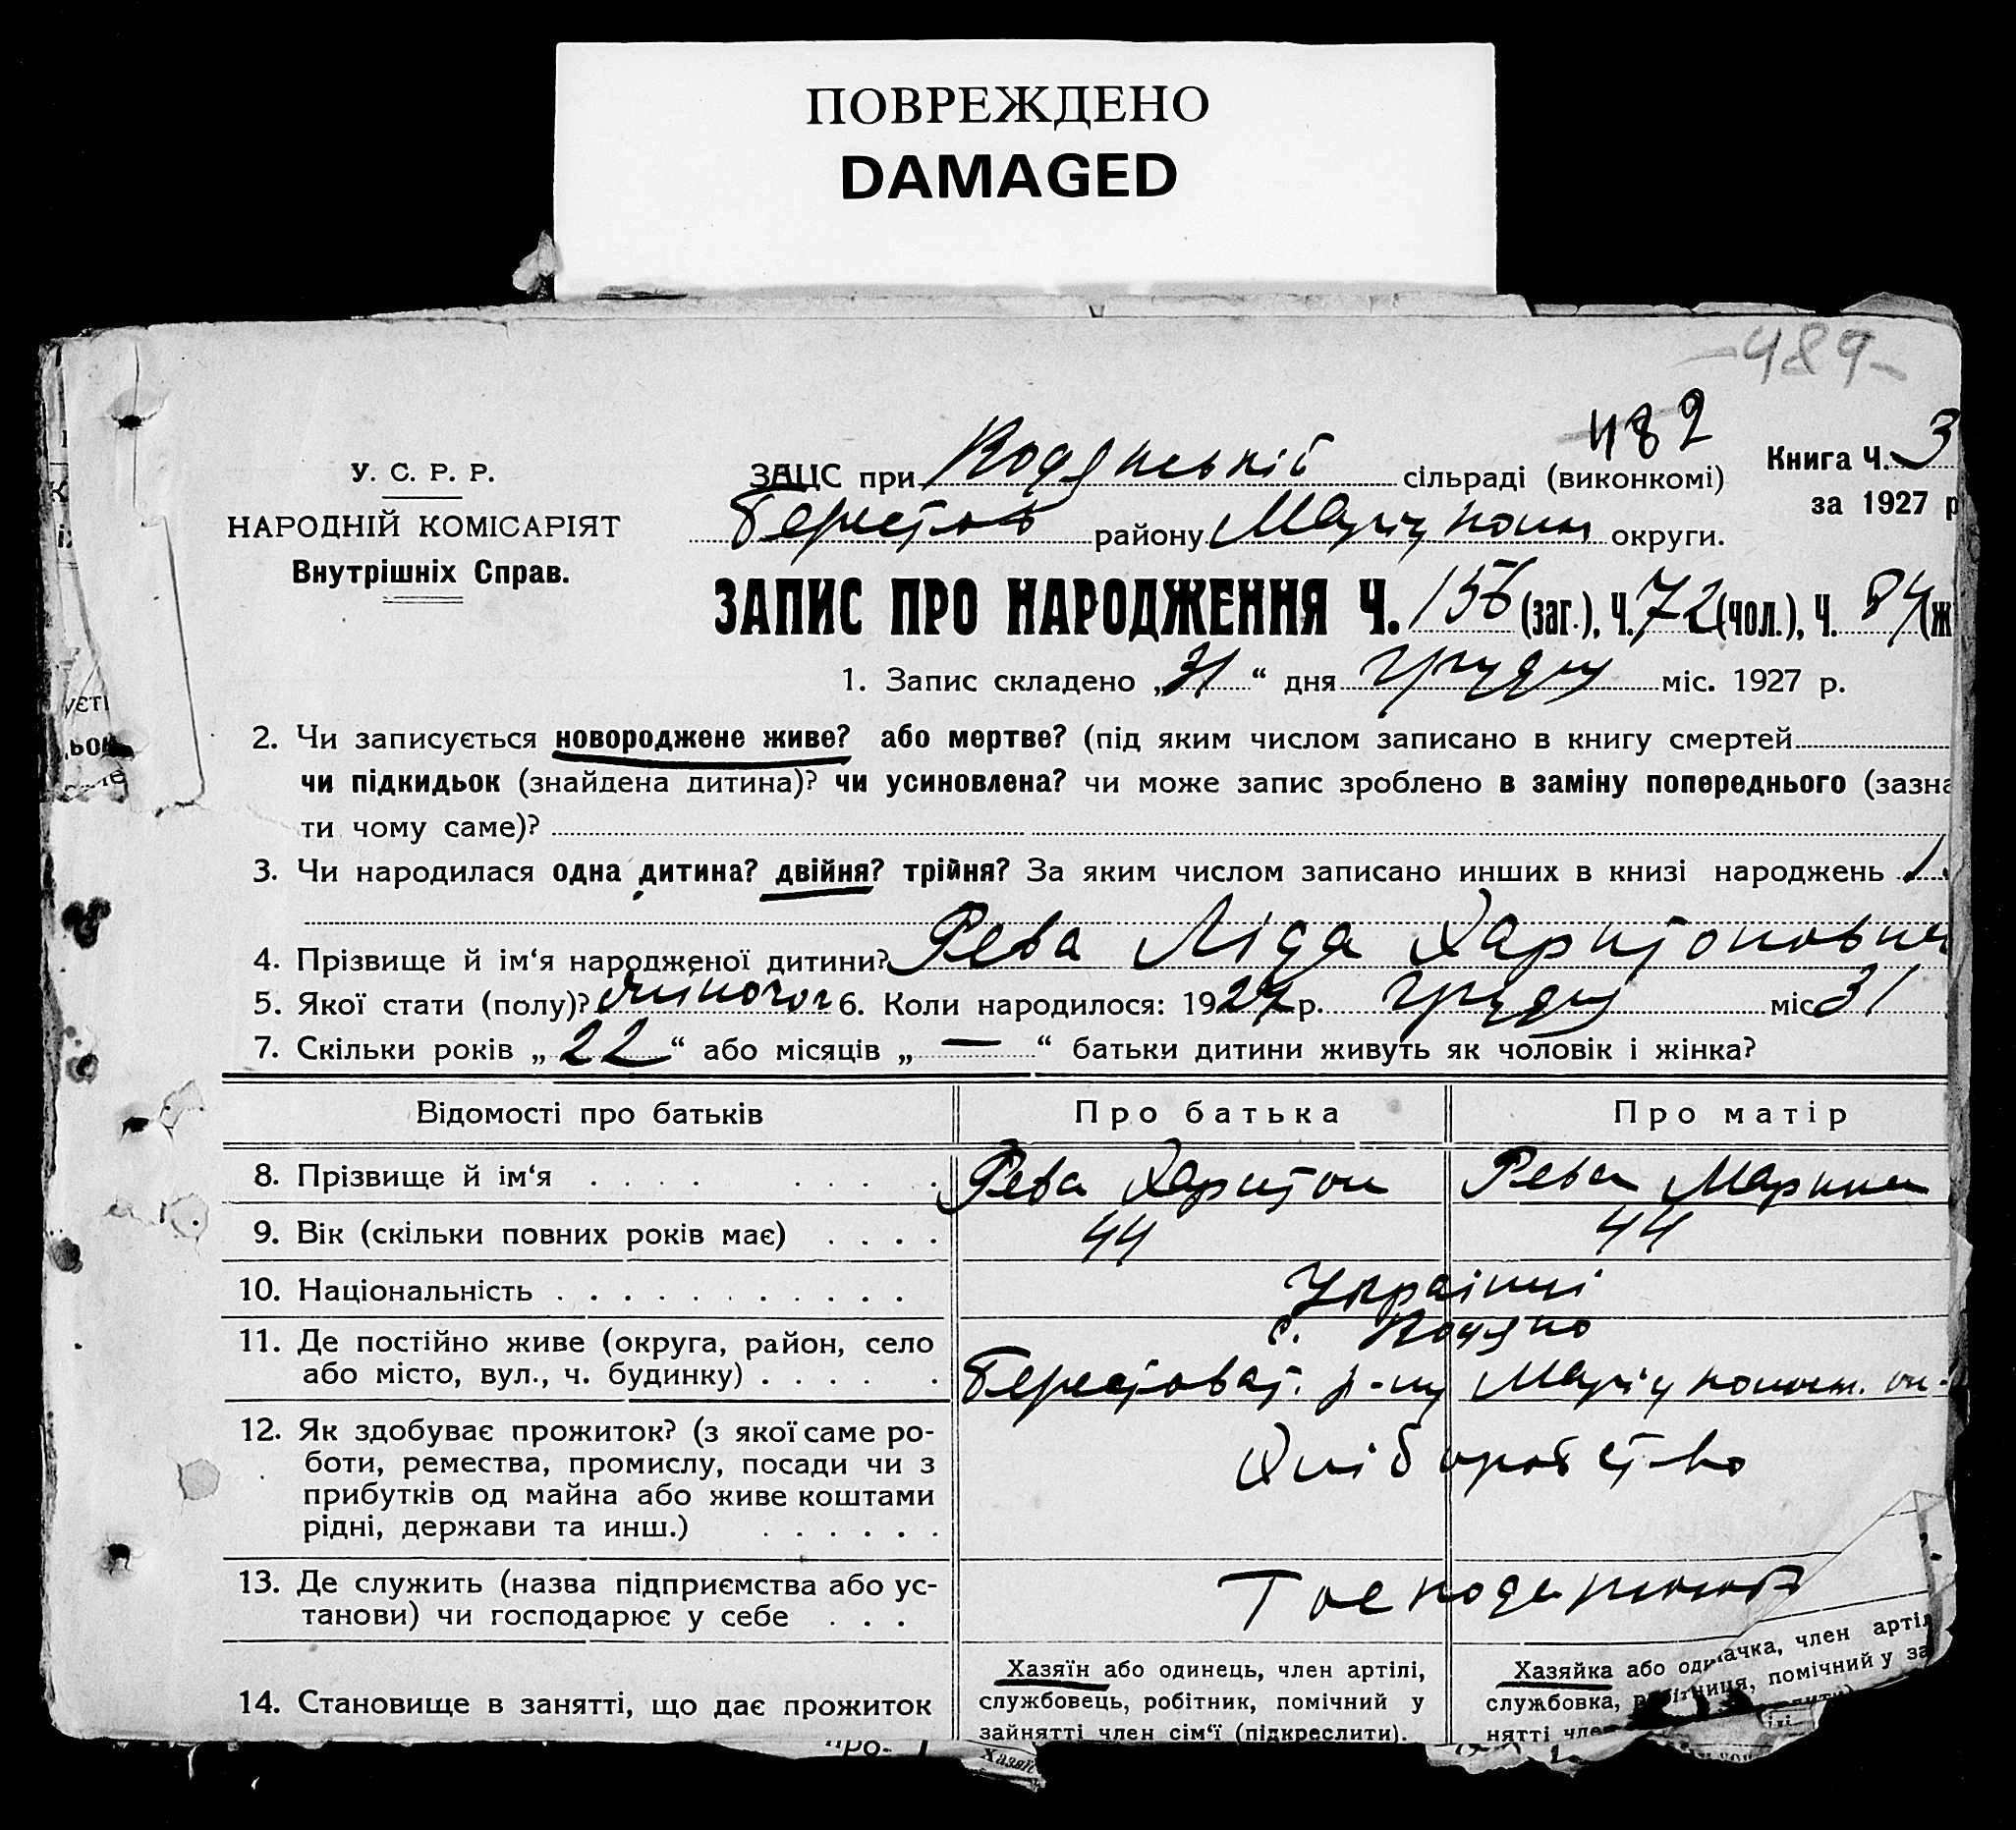 ПОВРЕЖДЕНО
DAMAGED
-489-
482
У. С. Р. Р.
НАРОДНІЙ КОМІСАРІЯТ
Внутрішніх Справ.
ЗАЦС при Водянській сільраді (виконкомі)
Книга Ч. 3
за 1927 р
Берестов району Маріупольськ округи.
ЗАПИС ПРО НАРОДЖЕННЯ Ч. 156 (заг.), Ч. 72 (чол.), Ч. 84 (ж
1. Запис складено „31“ дня грудня міс. 1927 р.
2. Чи записується новороджене живе? або мертве? (під яким числом записано в книгу смертей
чи підкидьок (знайдена дитина)? чи усиновлена? чи може запис зроблено в заміну попереднього (зазна
ти чому саме)?
3. Чи народилася одна дитина? двійня? трійня? За яким числом записано инших в книзі народжень 1
4. Прізвище й ім‘я народженої дитини? Рева Ліда Харитоновна
5. Якої стати (полу)? жіночої 6. Коли народилося: 1927 р. грудня міс 31
7. Скільки років „22“ або місяців „—“ батьки дитини живуть як чоловік і жінка?
Відомості про батьків Про батька Про матір
8. Прізвище й ім‘я . . . . . . . . Рева Харитон Рева Марина
9. Вік (скільки повних років має) . . . . 44 44
10. Національність . . . . . . . . . . . Українці
11. Де постійно живе (округа, район, село
або місто, вул., ч. будинку) . . . . .
с. Водяно
Берестоват. р-ну Маріупольськ. ок.
12. Як здобуває прожиток? (з якої саме ро-
боти, ремества, промислу, посади чи з
прибутків од майна або живе коштами
рідні, держави та инш.) . . . . . .
Хліборобство
13. Де служить (назва підприємства або ус-
танови) чи господарює у себе . . .
14. Становище в занятті, що дає прожиток
Хазяїн або одинець, член артілі,
службовець, робітник, помічний у
зайнятті член сім‘ї (підкреслити).
Хазяйка або оди ачка, член артіл
службовка, р ітниця, помічний у за
нятті чле
Хазяї